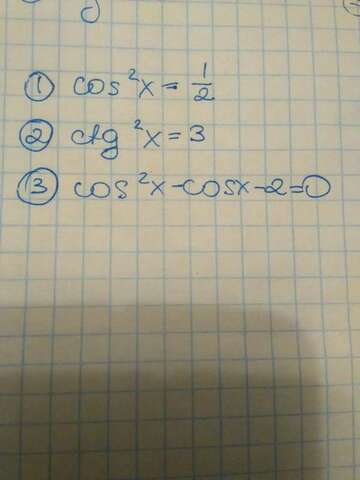 ① cos²x = 1/2
② ctg²x = 3
③ cos²x - cosx - 2 = 0